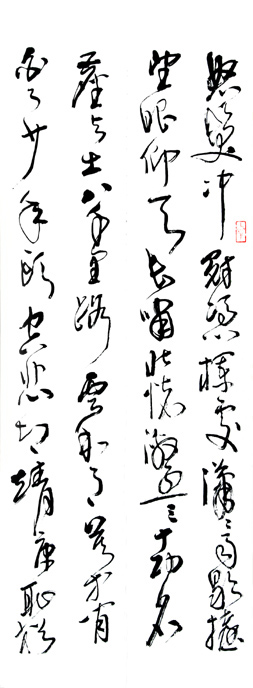 怒髮冲冠憑欄處瀟瀟雨歇擡
望眼仰天長嘯壮懷激烈三十功名
塵与土八千里路雲和月莫等閒
白了少年頭空悲切靖康耻猶